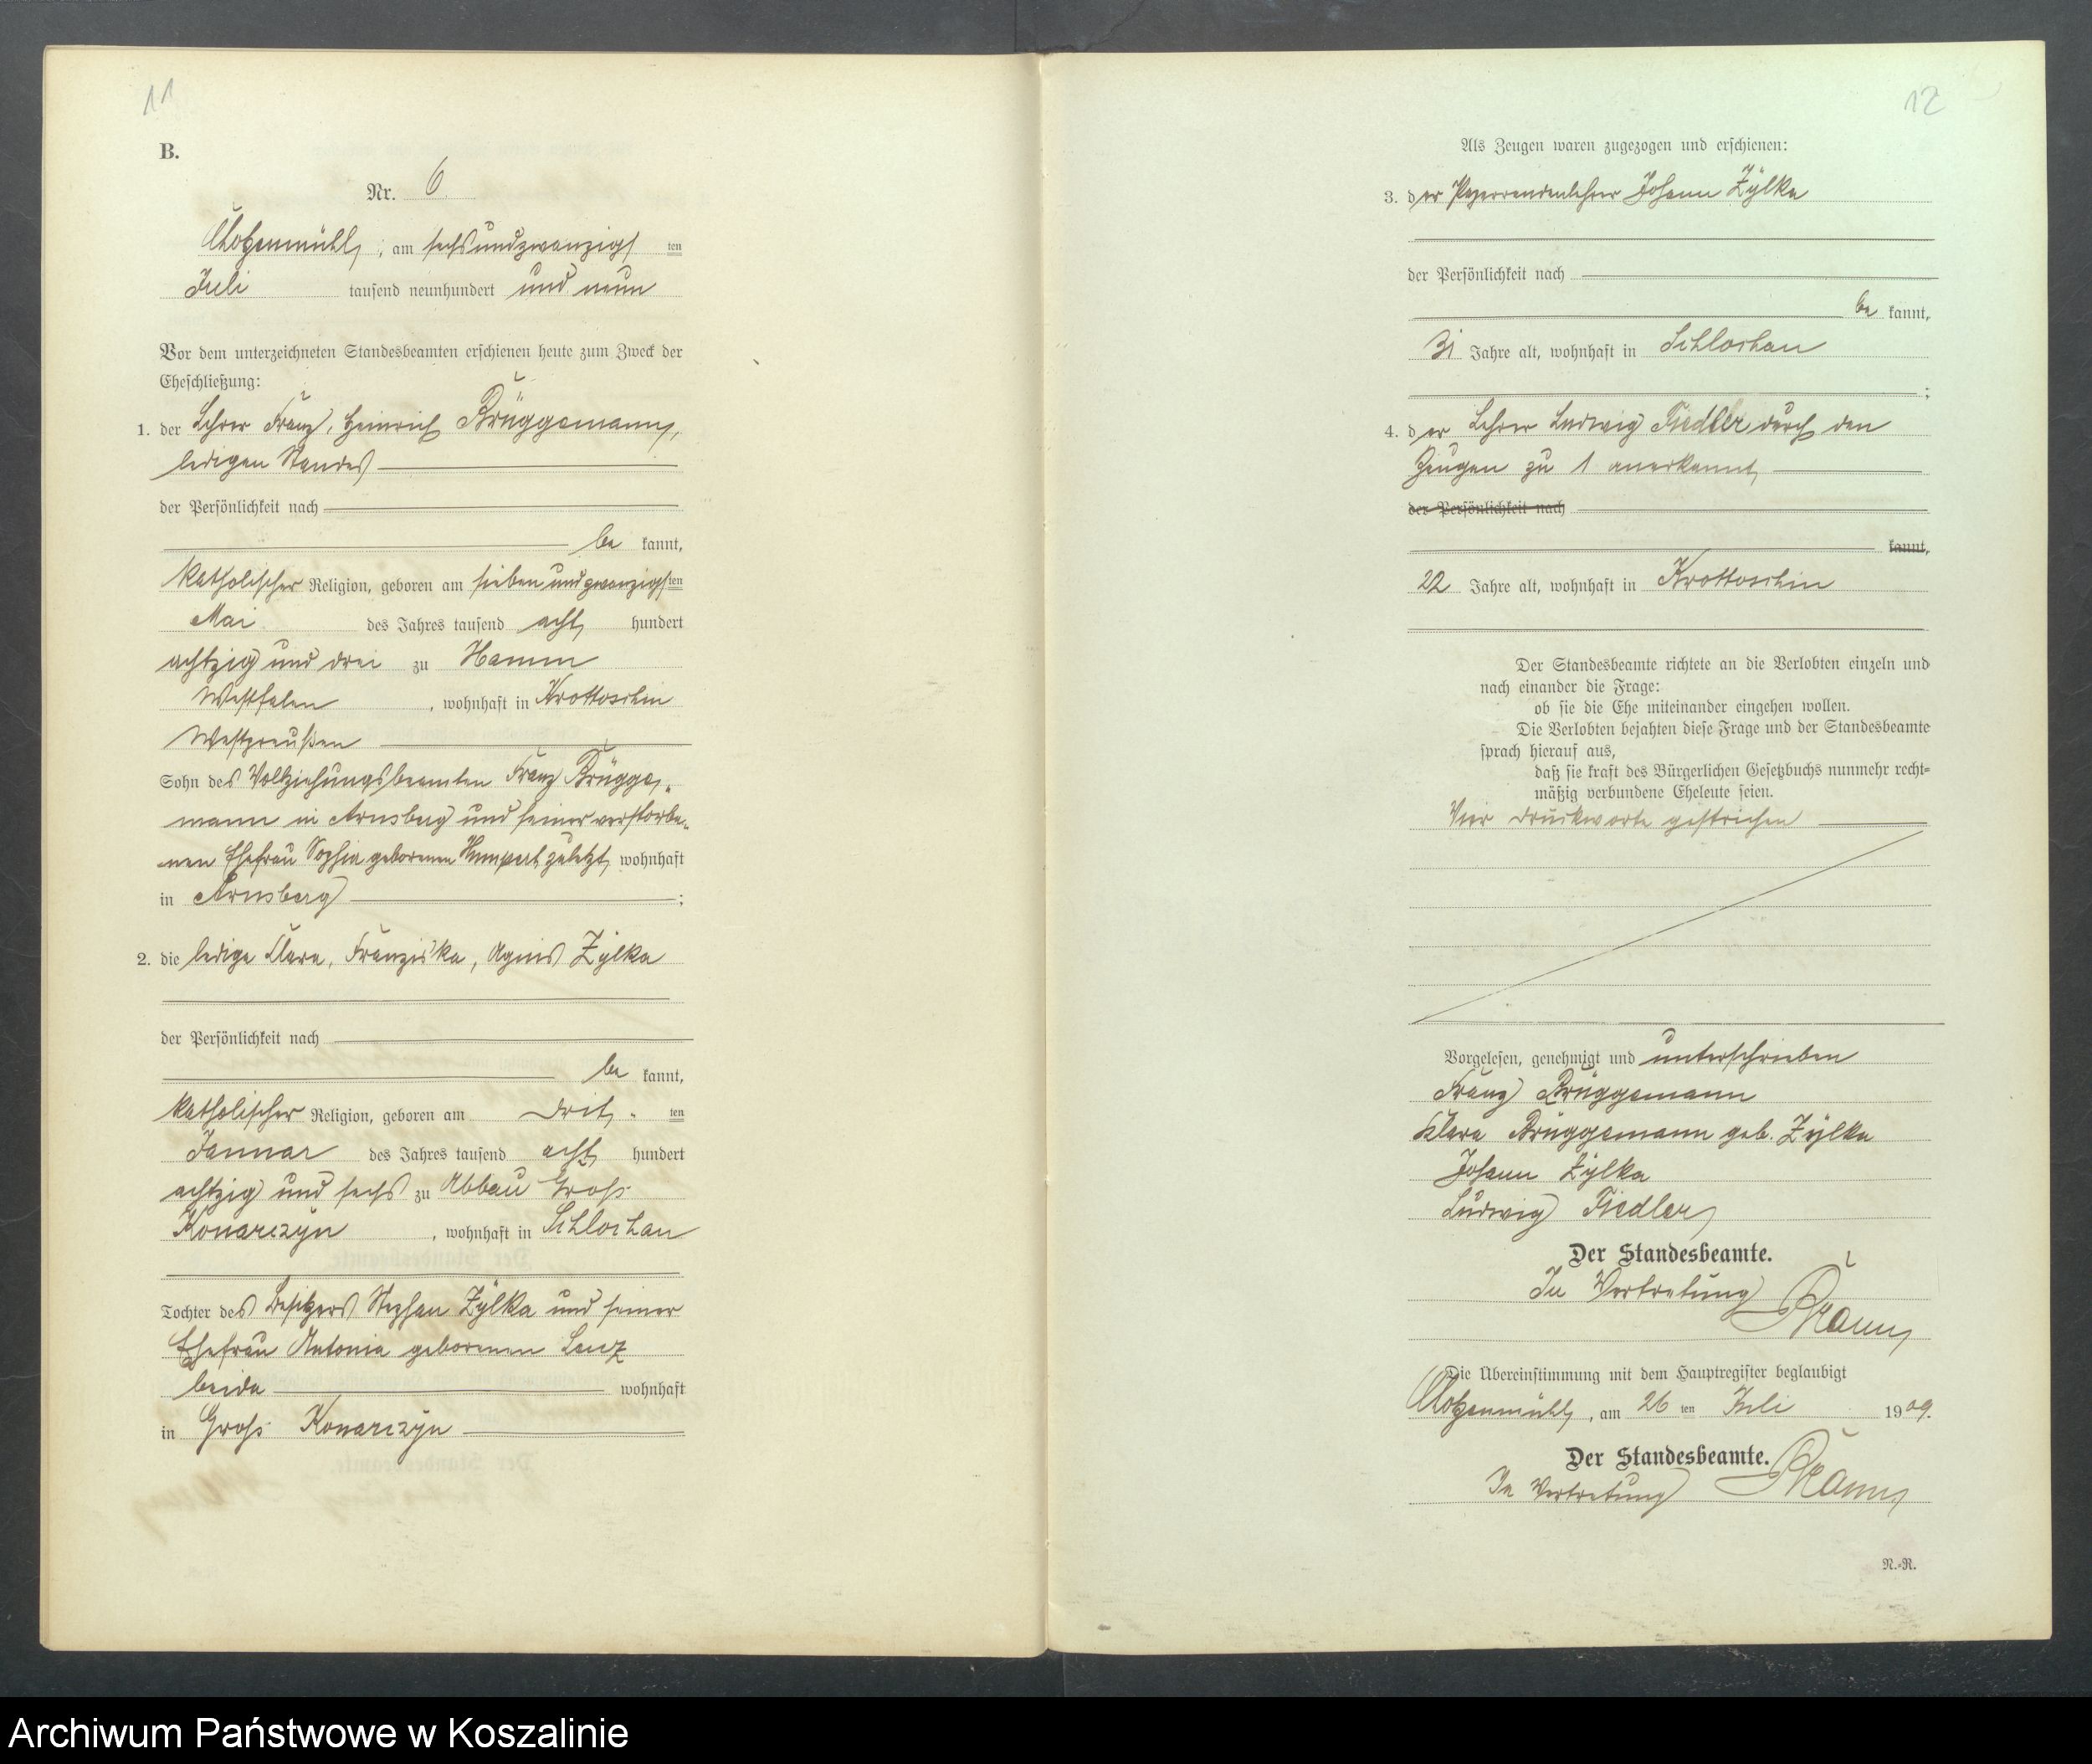 11
B.
Nr. 6
Chotzenmühl, am sechsundzwanzigsten
Juli tausend neunhundert und neun
Vor dem unterzeichneten Standesbeamten erschienen heute zum Zweck der
Eheschließung:
1. der Lehrer Franz, Heinrich Brüggemann,
ledigen Standes
der Persönlichkeit nach
be kannt,
katholischer Religion, geboren am siebenundzwanzigsten
Mai des Jahres tausend acht hundert
achtzig und drei zu Hamm
Westfalen, wohnhaft in Krottoschin
Westpreußen
Sohn des Vollziehungsbeamten Franz Brügge-
mann in Arnsberg und seiner verstorbe-
nen Ehefrau Sophia geborenen Humpert zuletzt wohnhaft
in Arnsberg ;
2. die ledige Klara, Franziska, Agnes Zylka
der Persönlichkeit nach
be kannt,
katholischer Religion, geboren am drit-ten
Januar des Jahres tausend acht hundert
achtzig und sechs zu Abbau Groß
Konarczyn, wohnhaft in Schlochau
Tochter des Besitzers Stephan Zylka und seiner
Ehefrau Antonia geborenen Lenz
beide wohnhaft
in Groß Konarczyn
12
Als Zeugen waren zugezogen und erschienen:
3. der Johann Zylka
der Persönlichkeit nach
be kannt,
31 Jahre alt, wohnhaft in Schlochau
;
4. der Lehrer Ludwig Fiedler durch den
Zeugen zu 1 anerkannt,
der Persönlichkeit nach
kannt,
22 Jahre alt, wohnhaft in Krottoschin
Der Standesbeamte richtete an die Verlobten einzeln und
nach einander die Frage:
ob sie die Ehe miteinander eingehen wollen.
Die Verlobten bejahten diese Frage und der Standesbeamte
sprach hierauf aus,
daß sie kraft des Bürgerlichen Gesetzbuchs nunmehr recht-
mäßig verbundene Eheleute seien.
Vier Druckworte gestrichen
Vorgelesen, genehmigt und unterschrieben
Franz Brüggemann
Klara Brüggemann geb. Zylka
Johann Zylka
Ludwig Fiedler
Der Standesbeamte.
In Vertretung
Die Übereinstimmung mit dem Hauptregister beglaubigt
Chotzenmühl, am 26ten Juli 1909.
Der Standesbeamte.
In Vertretung
N.-R.
Archiwum Państwowe w Koszalinie